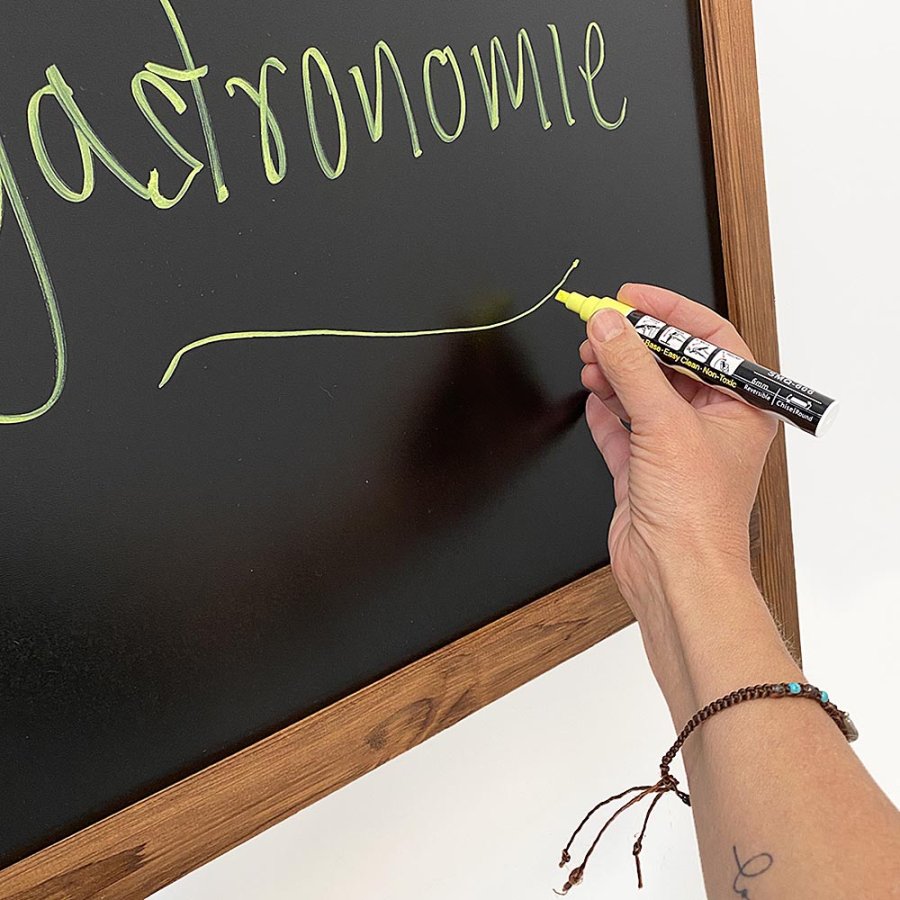 gastronomie
Base·Easy Clean·Non-Toxic
SMQ-606
6mm
Reversible
Chisel|Round